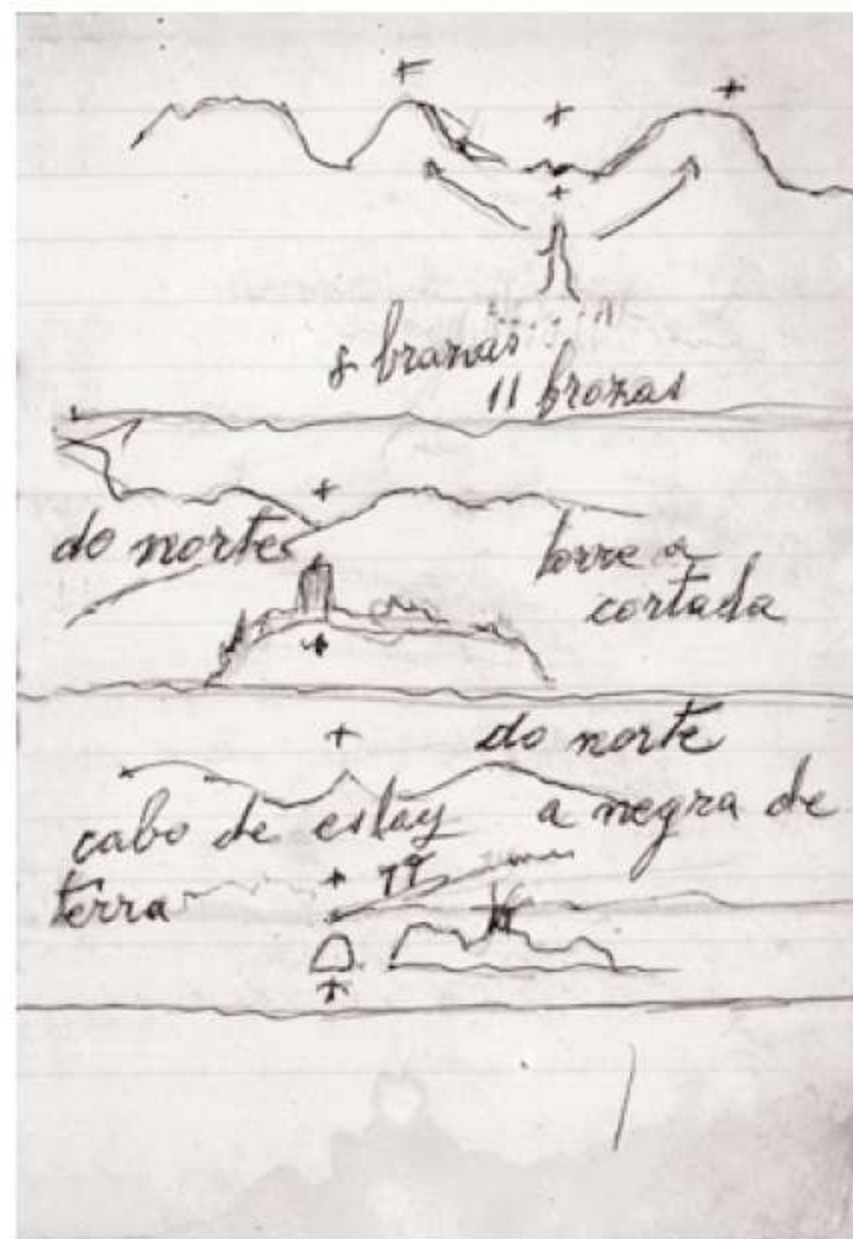 8 branas
11 brozas
do norte
torre a
cortada
do norte
cabo de eslay
a negra de
terra